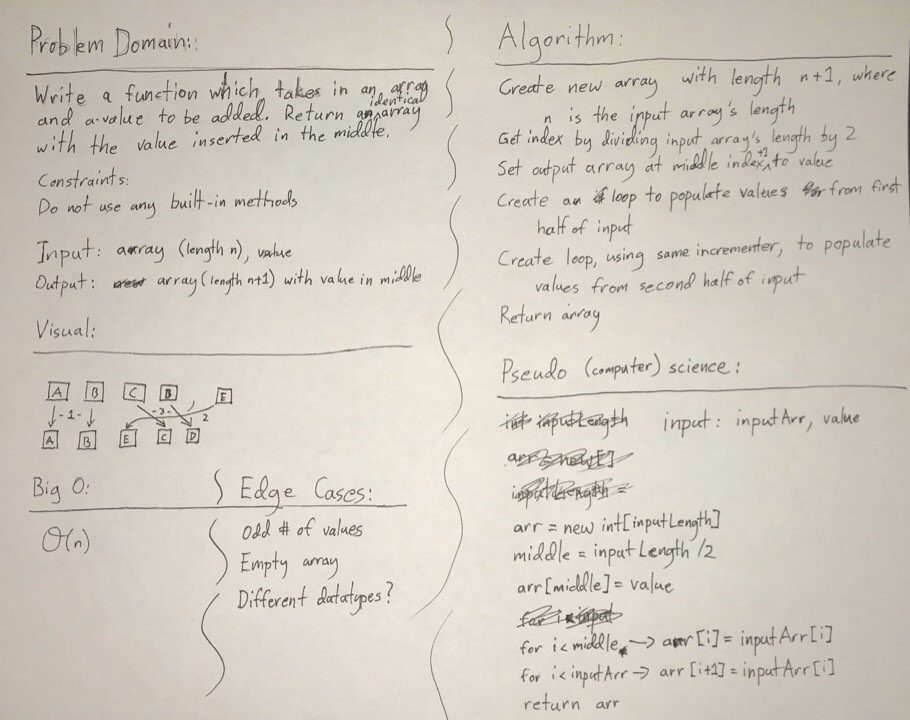 Problem Domain:
Write a function which takes in an array
and a value to be added. Return an identical array
with the value inserted in the middle.
Constraints:
Do not use any built-in methods
Input: array (length n), value
Output: array (length n+1) with value in middle
Visual:
A B C B E
-1- -3- 2
A B E C D
Big O:
O(n)
Edge Cases:
Odd # of values
Empty array
Different datatypes?
Algorithm:
Create new array with length n+1, where
n is the input array's length
Get index by dividing input array's length by 2
Set output array at middle index +1 to value
Create a loop to populate values from first
half of input
Create loop, using same incrementer, to populate
values from second half of input
Return array
Pseudo (computer) science:
int inputLength input: inputArr, value
arr = new []
inputLength =
arr = new int[inputLength]
middle = inputLength /2
arr[middle] = value
for i < input
for i < middle → arr[i] = inputArr[i]
for i < inputArr → arr[i+1] = inputArr[i]
return arr